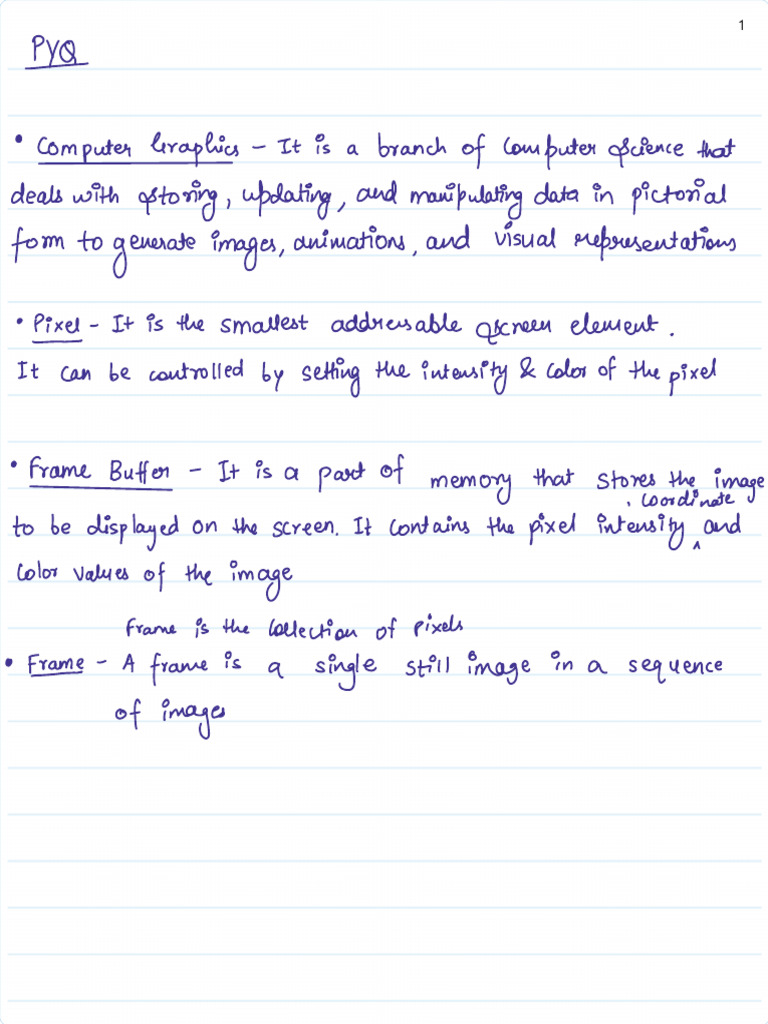 1
PYQ
• Computer Graphics - It is a branch of computer science that
deals with storing, updating, and manipulating data in pictorial
form to generate images, animations, and visual representations
• Pixel - It is the smallest addressable screen element.
It can be controlled by setting the intensity & color of the pixel
• Frame Buffer - It is a part of memory that stores the image
, coordinate
to be displayed on the screen. It contains the pixel intensity ^ and
color values of the image
Frame is the collection of pixels
• Frame - A frame is a single still image in a sequence
of images